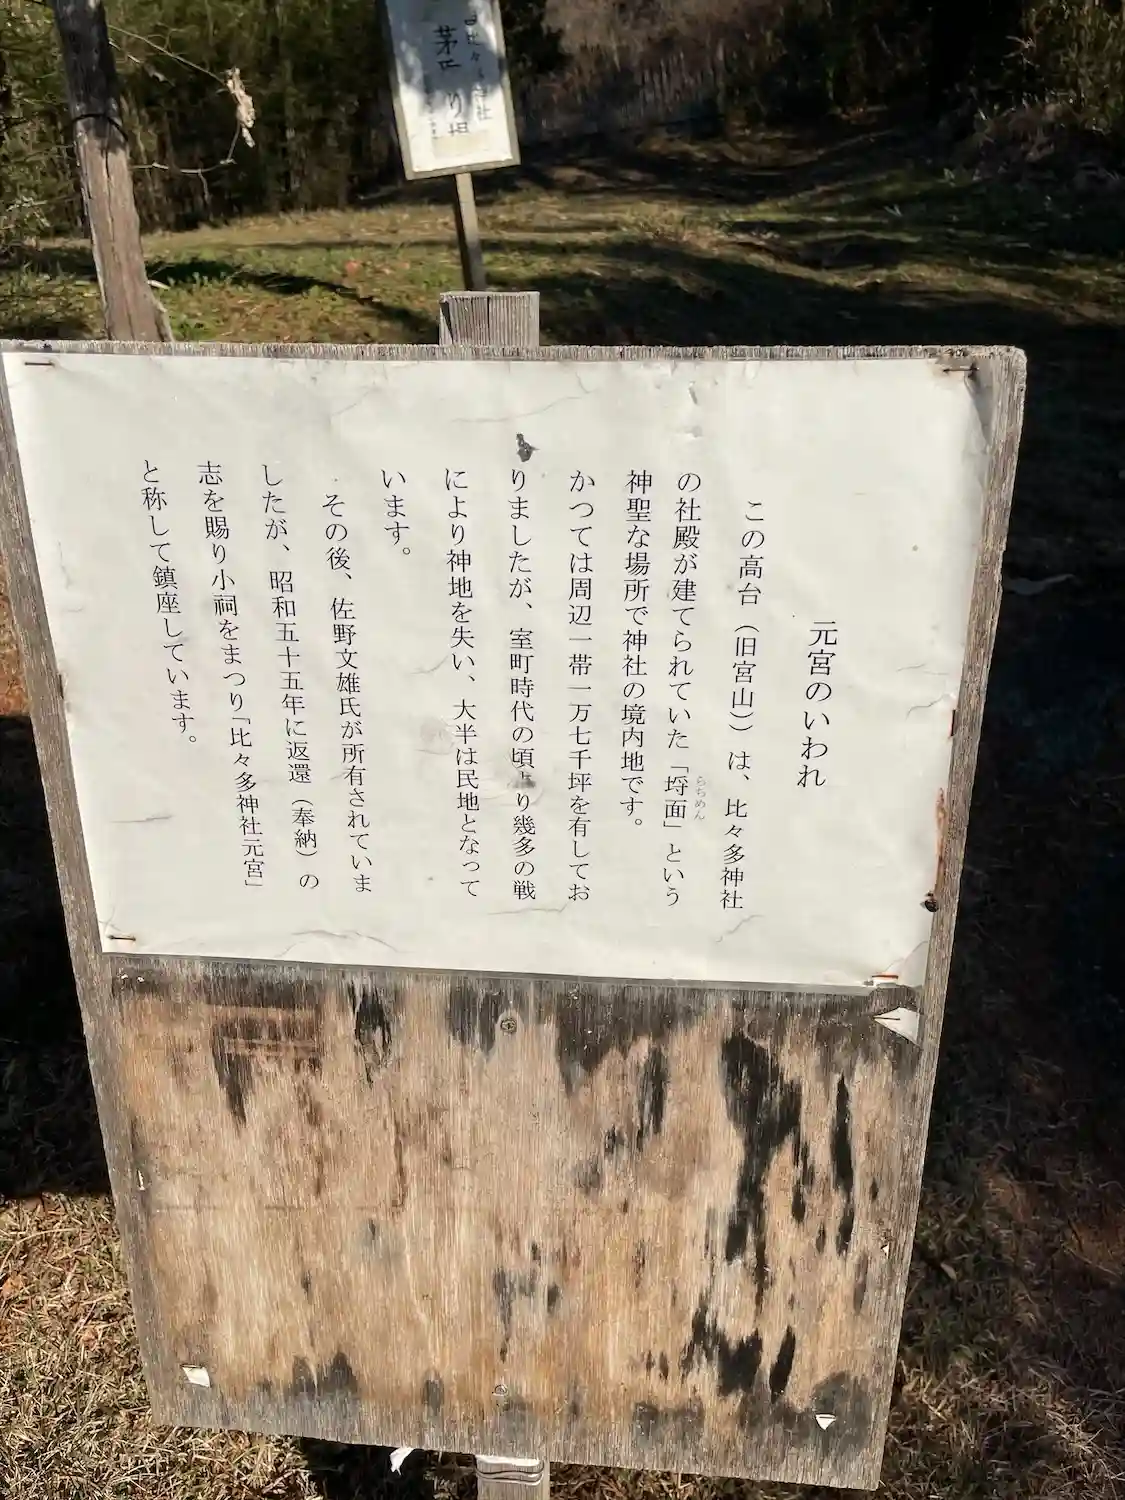 元宮のいわれ
この高台（旧宮山）は、比々多神社
の社殿が建てられていた「埒面」という
らちめん
神聖な場所で神社の境内地です。
かつては周辺一帯一万七千坪を有してお
りましたが、室町時代の頃より幾多の戦
により神地を失い、大半は民地となって
います。
その後、佐野文雄氏が所有されていま
したが、昭和五十五年に返還（奉納）の
志を賜り小祠をまつり「比々多神社元宮」
と称して鎮座しています。